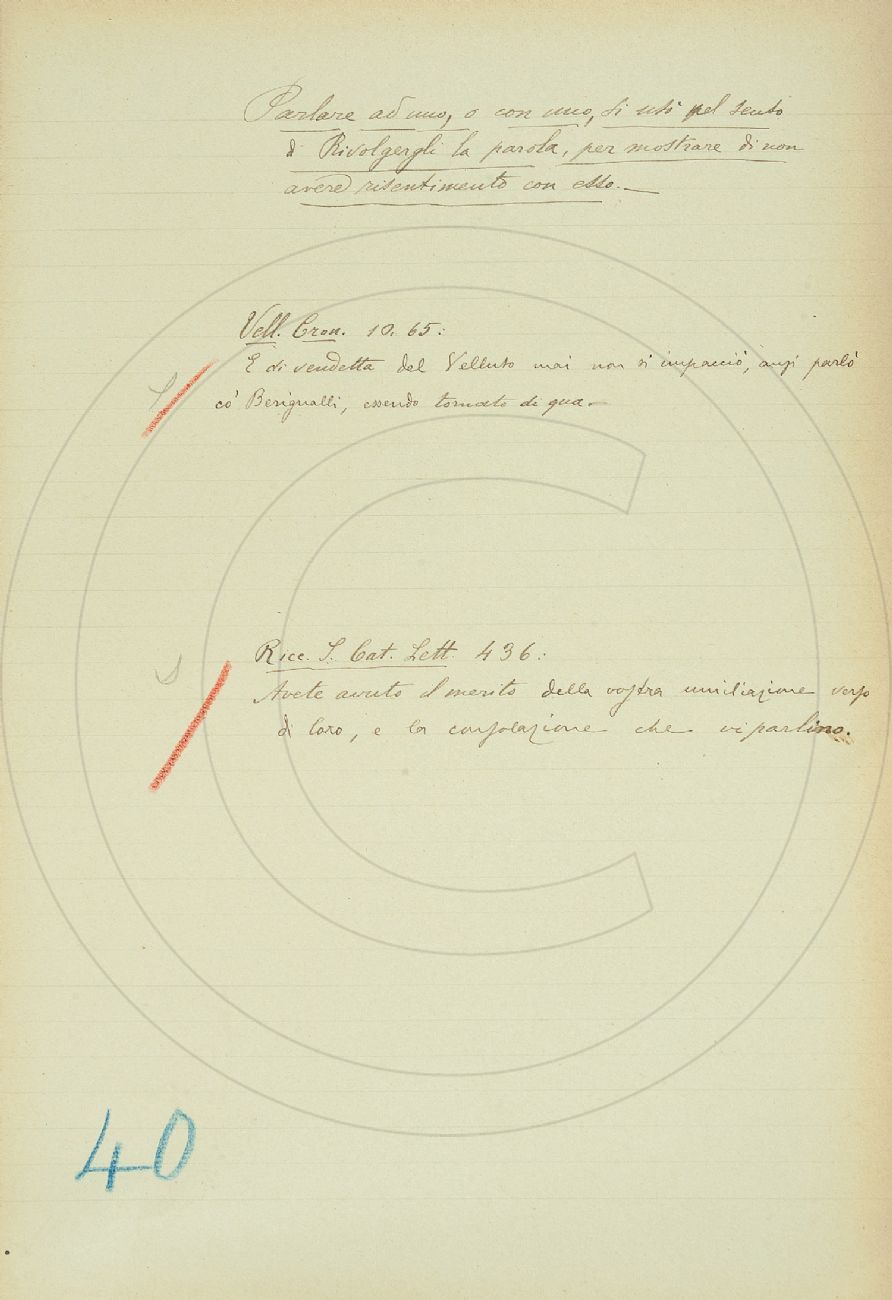 Parlare ad uno, o con uno, si usò pel senso
di Rivolgergli la parola, per mostrare di non
avere risentimento con esso.—
Vell. Cron. 10. 65:
E di vendetta del Velluto mai non si impacciò, anzi parlò
co' Berignalli, essendo tornato di qua.—
Ricc. S. Cat. Lett. 436:
Avete avuto il merito della vostra umiliazione verso
di loro, e la consolazione che vi parlino.
40